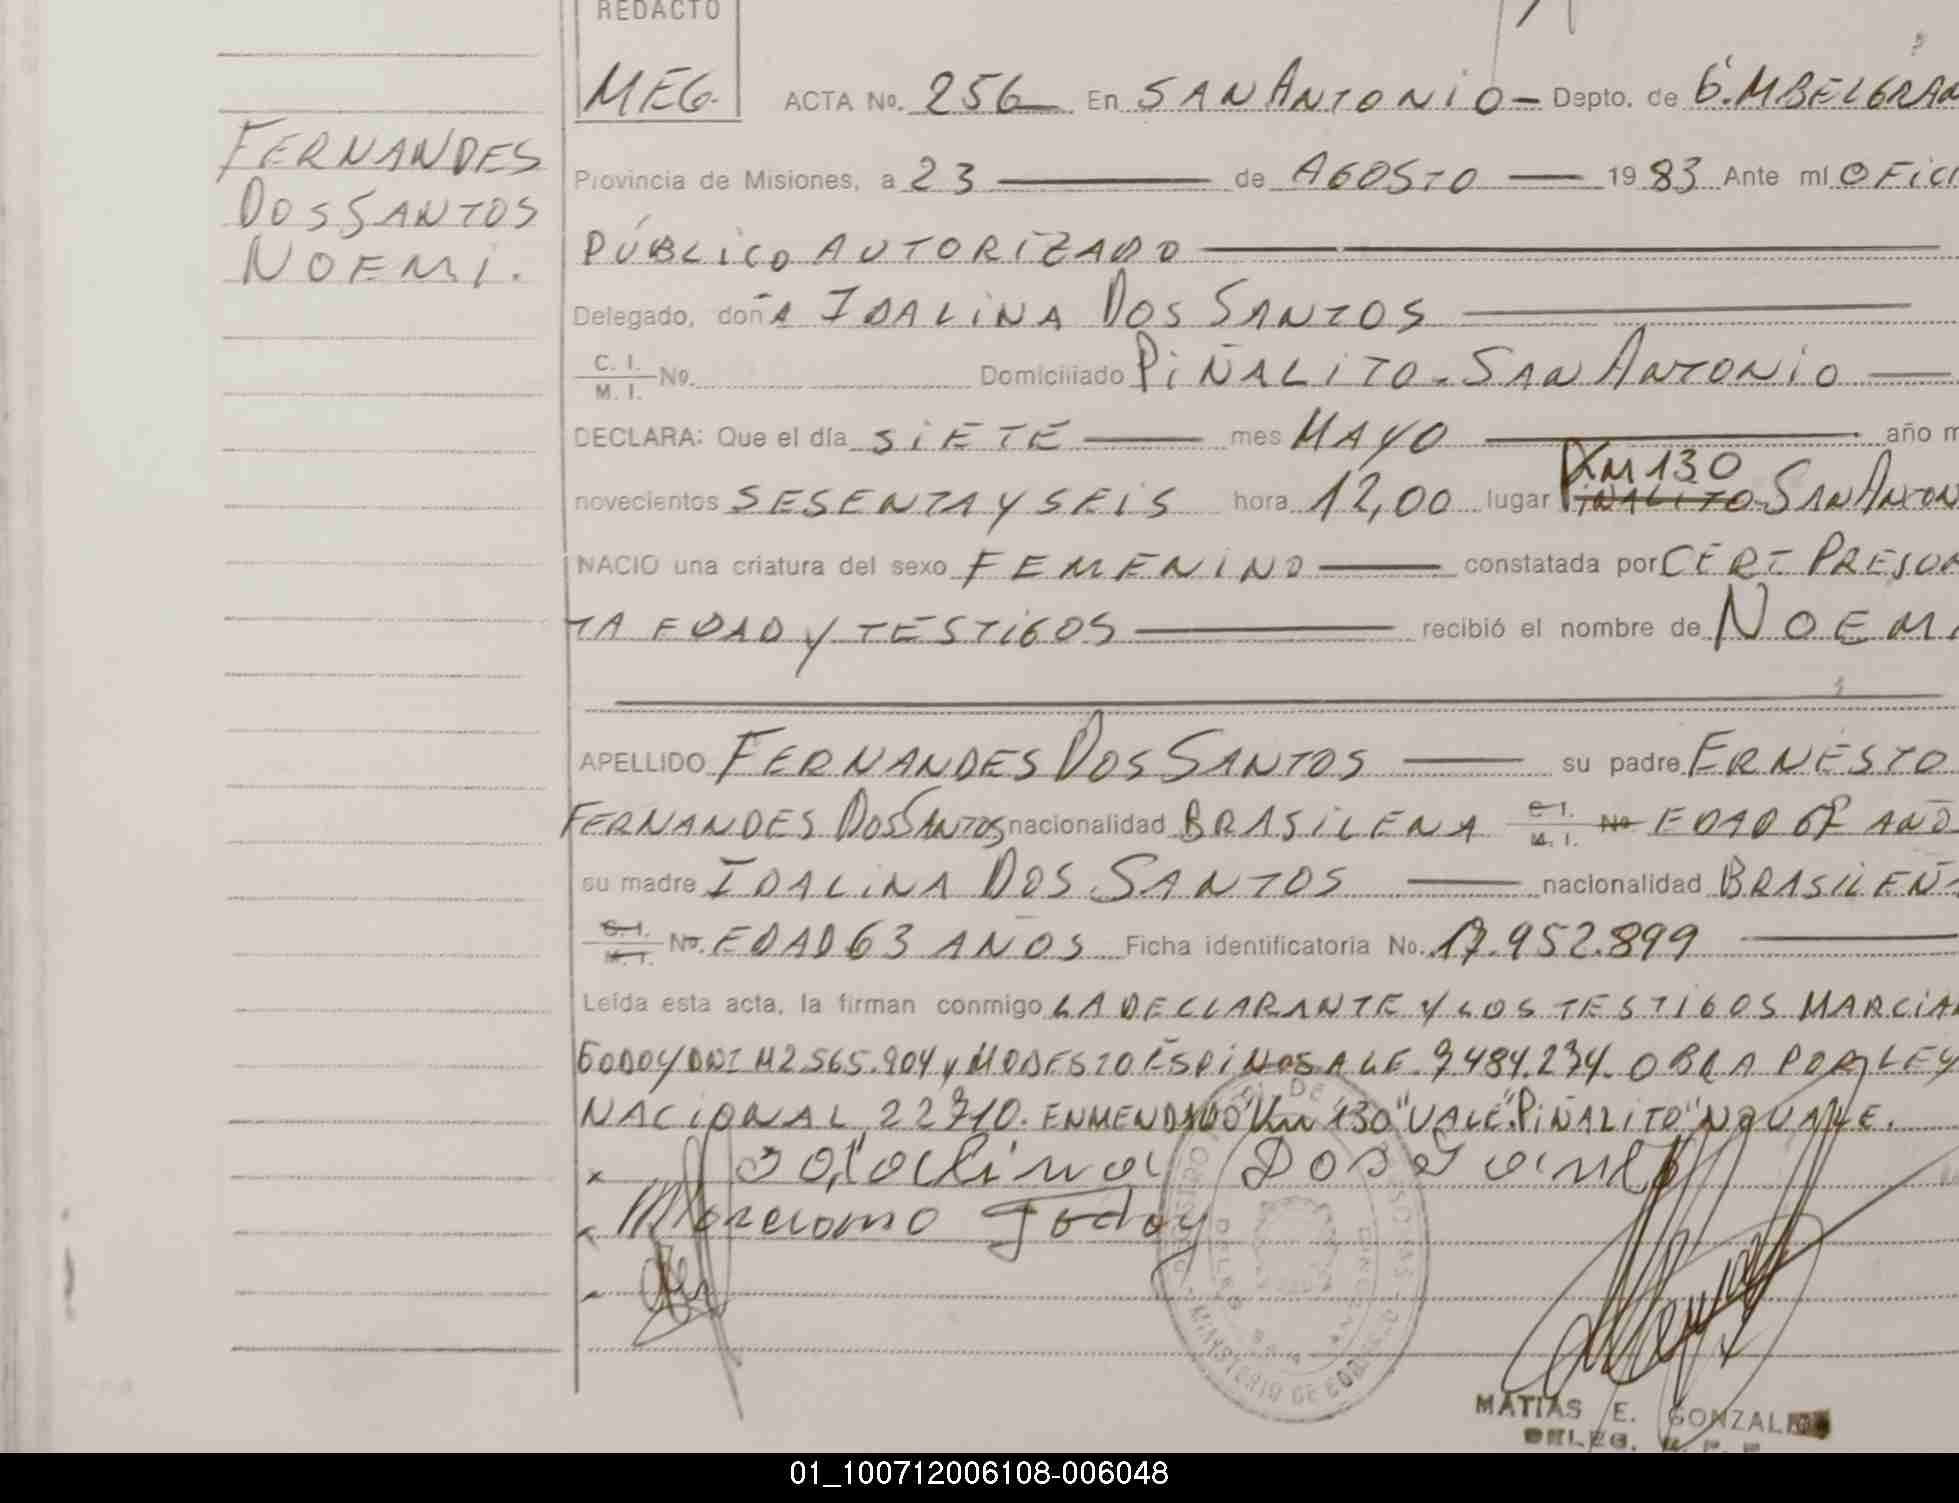 REDACTO
MEG.
FERNANDES
DOS SANTOS
NOEMI.
ACTA No. 256 En SAN ANTONIO - Depto. de G. M BELGRAN
Provincia de Misiones, a 23 de AGOSTO 1983 Ante mí OFICI
PÚBLICO AUTORIZADO
Delegado, doña IDALINA DOS SANTOS
C. I. / M. I. No. Domiciliado PIÑALITO - SAN ANTONIO
DECLARA: Que el día SIETE mes MAYO año m
KM 130
novecientos SESENTA Y SEIS hora 12,00 lugar PIÑALITO - SAN ANTON
NACIO una criatura del sexo FEMENINO constatada por CERT PRESUN
TA EDAD Y TESTIGOS recibió el nombre de NOEMI
APELLIDO FERNANDES DOS SANTOS su padre ERNESTO
FERNANDES DOS SANTOS nacionalidad BRASILENA C. I. / M. I. No EDAD 67 AÑO
su madre IDALINA DOS SANTOS nacionalidad BRASILEÑA
C. I. / M. I. No. EDAD 63 AÑOS Ficha identificatoria No. 17.952.899
Leída esta acta, la firman conmigo LA DECLARANTE Y LOS TESTIGOS MARCIAN
GODOY DNI M2.565.904 y MODESTO ESPINOSA LE 7.484.234. OBRA POR LEY
NACIONAL 22710. ENMENDADO "Km 130" VALE. "PIÑALITO" NO VALE.
x Dos Santo
x Marciano Godoy
MINISTERIO DE GOBIERNO
MATIAS E. GONZALEZ
DELEG.
01_100712006108-006048